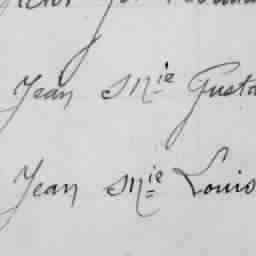 Jean Mie Gusta
Jean Mie Louis